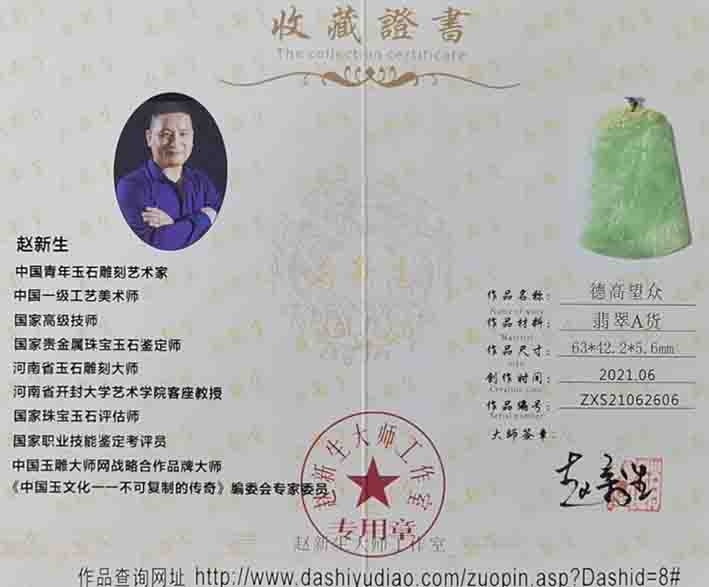 收藏證書
The collection certificate
赵新生
中国青年玉石雕刻艺术家
中国一级工艺美术师
国家高级技师
国家贵金属珠宝玉石鉴定师
河南省玉石雕刻大师
河南省开封大学艺术学院客座教授
国家珠宝玉石评估师
国家职业技能鉴定考评员
中国玉雕大师网战略合作品牌大师
《中国玉文化一一不可复制的传奇》编委会专家委员
作品名称: 德高望众
Name of work
作品材料: 翡翠A货
Material
作品尺寸: 63*42.2*5.6mm
size
创作时间: 2021.06
Creation time
作品编号: ZXS21062606
Serial number
大师签章:
赵新生
赵新生大师工作室
专用章
赵新生大师工作室
作品查询网址 http://www.dashiyudiao.com/zuopin.asp?Dashid=8#